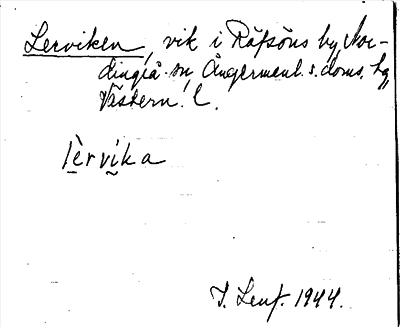 Lerviken, vik i Räfsöns by, Nor-
dingrå sn, Ångermanl. s. doms. hg,
Västern. l.
lèrvika
J. Lenf. 1944.